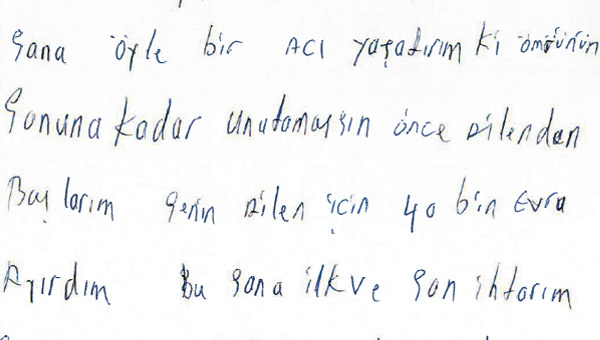 Sana öyle bir ACI yaşatırım ki ömrünün
Sonuna kadar unutamassın önce Ailenden
Başlarım Senin Ailen için 40 bin Evro
Ayırdım Bu Sana ilk ve Son ihtarım